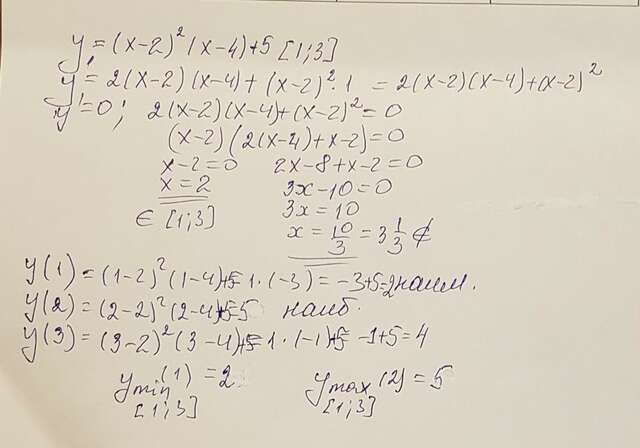 y = (x-2)²(x-4)+5 [1;3]
y' = 2(x-2)(x-4)+(x-2)²·1 = 2(x-2)(x-4)+(x-2)²
y'=0; 2(x-2)(x-4)+(x-2)²=0
(x-2)(2(x-4)+x-2)=0
x-2=0 2x-8+x-2=0
x=2 3x-10=0
∈ [1;3] 3x=10
x = 10/3 = 3 1/3 ∉
y(1) = (1-2)²(1-4)+5=1·(-3)= -3+5=2 наим.
y(2) = (2-2)²(2-4)+5=5 наиб.
y(3) = (3-2)²(3-4)+5=1·(-1)+5= -1+5=4
y min (1) = 2 y max (2) = 5
[1;3] [1;3]